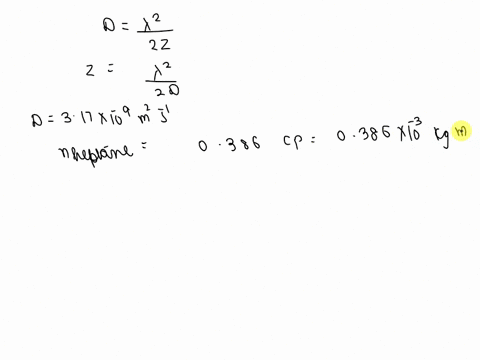 D = λ² / 2Z
Z = λ² / 2D
D = 3.17 × 10⁻⁹ m² s⁻¹
ηheptane = 0.386 cp = 0.386 × 10⁻³ kg m